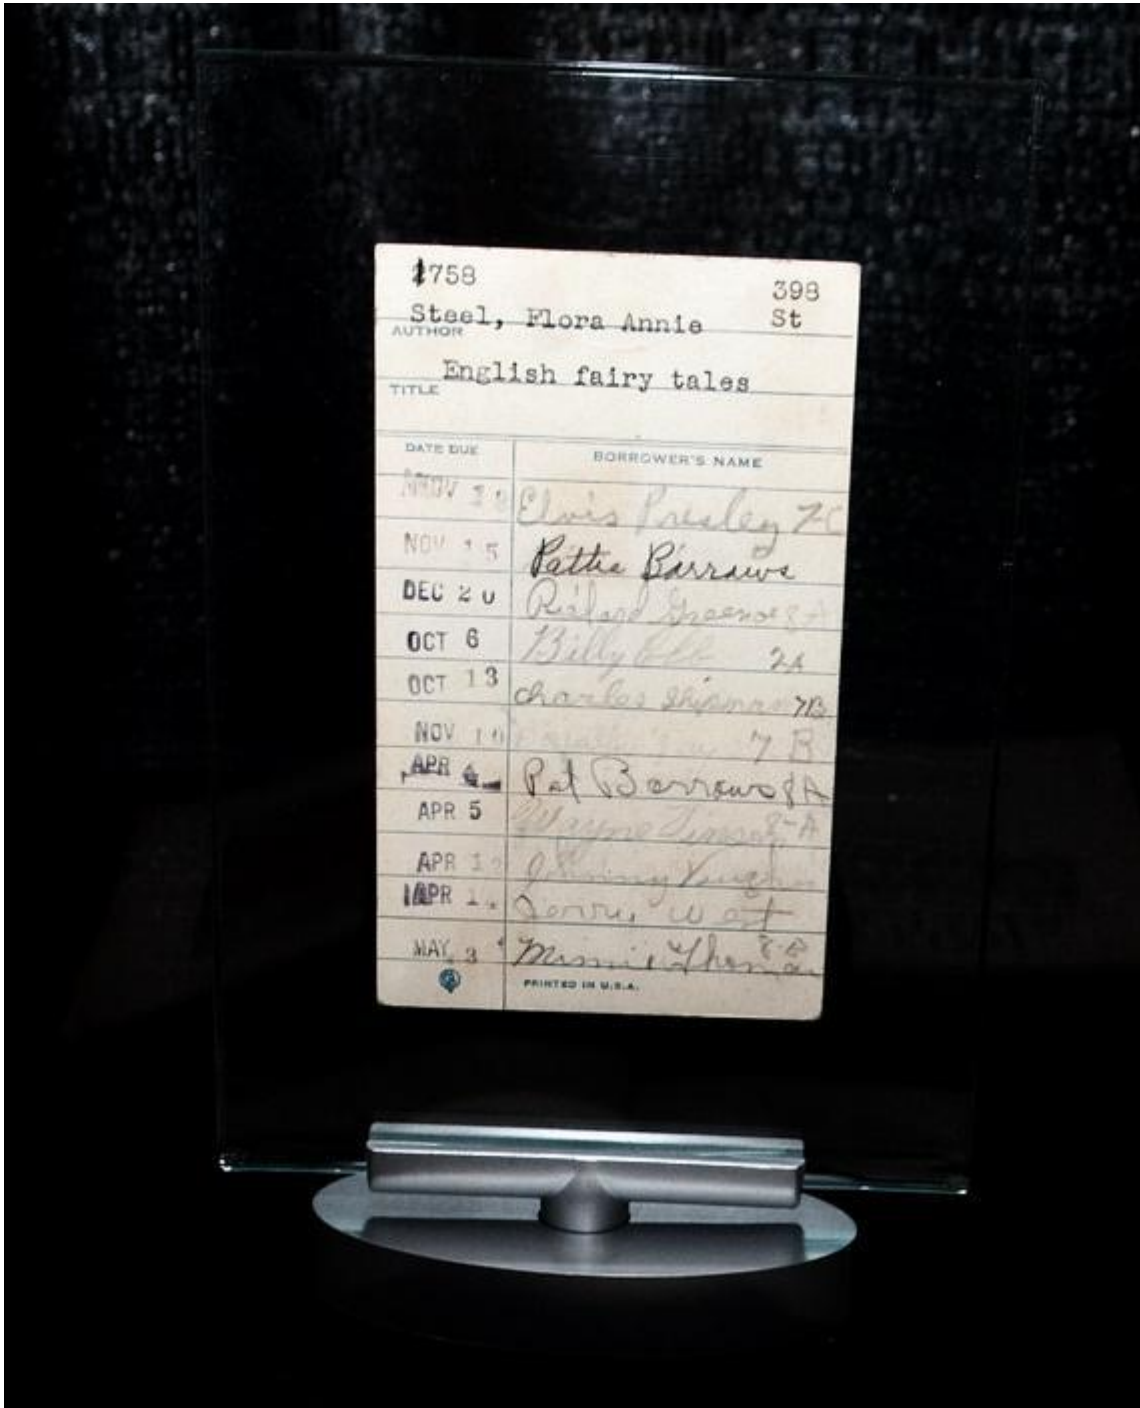 1758 398
Steel, Flora Annie St
AUTHOR
English fairy tales
TITLE
DATE DUE BORROWER'S NAME
NOV Elvis Presley 7-C
NOV 15 Pattie Barrows
DEC 20 Richard
OCT 6 Billy 7A
OCT 13 Charles Shipman 7B
NOV 7 B
APR Pat Barrows 8A
APR 5 Wayne 8-A
APR Johnny Vaughn
APR West
MAY 3 Minnie Thomas
PRINTED IN U.S.A.